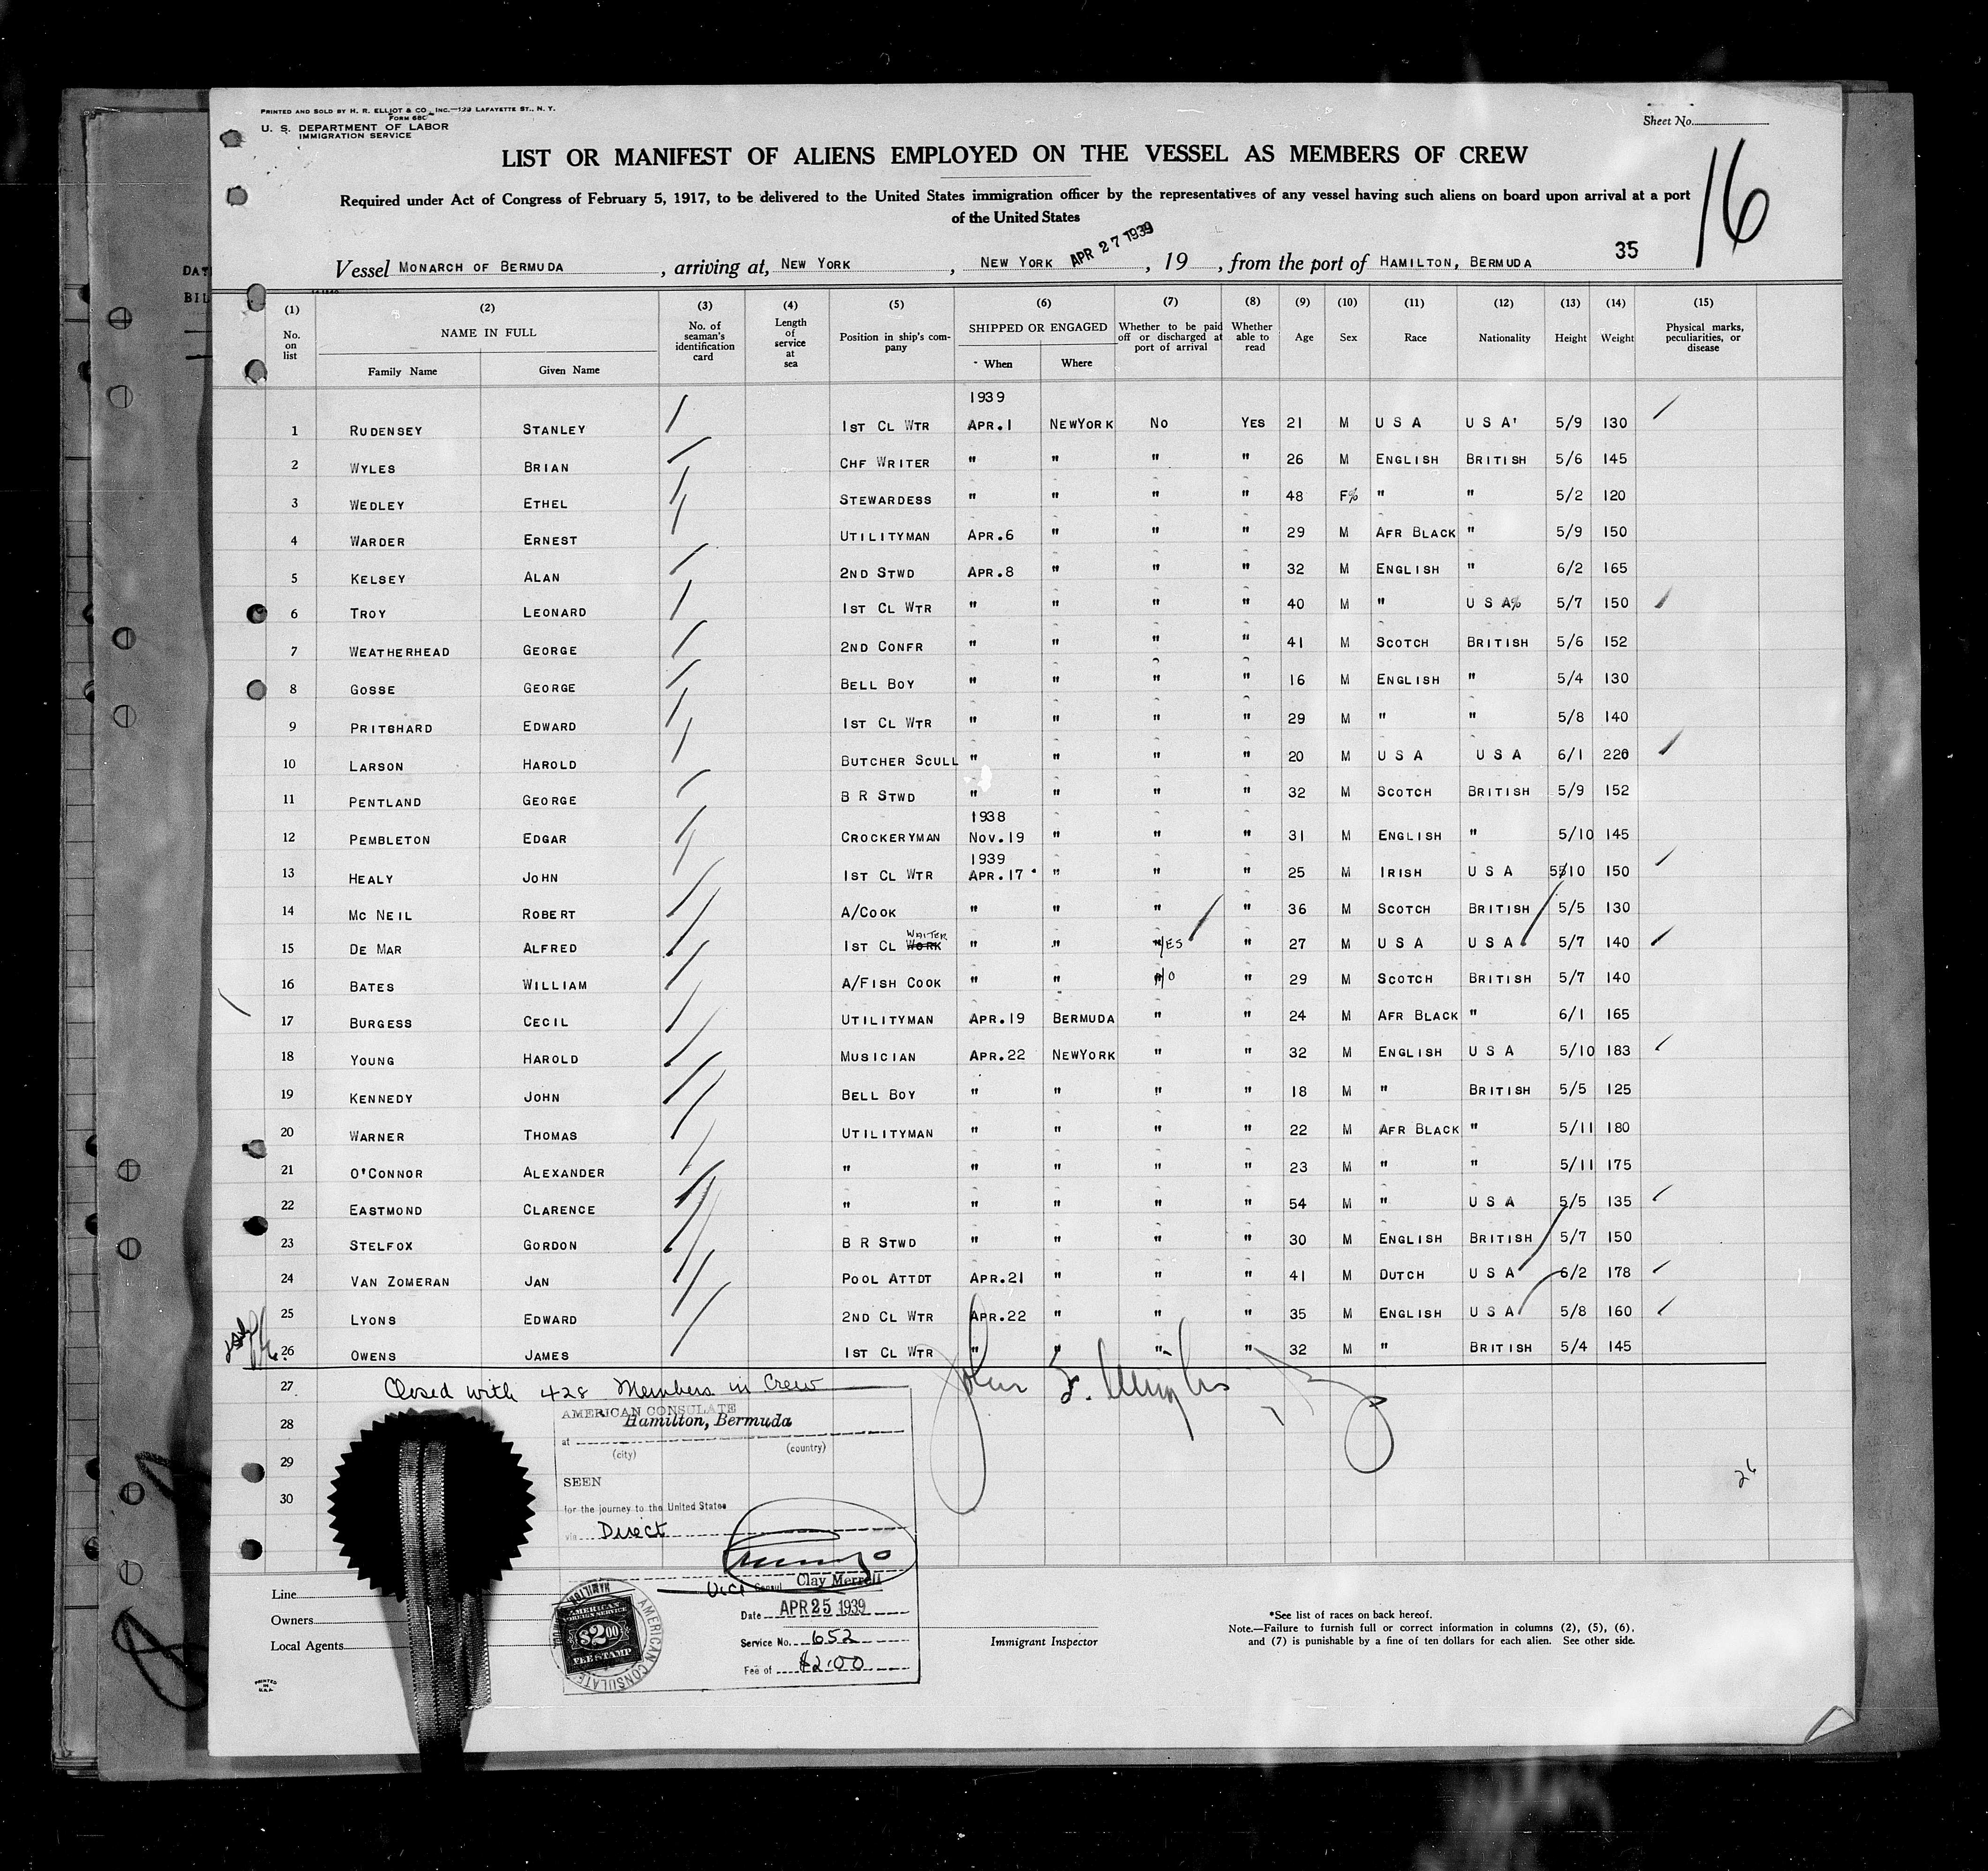 PRINTED AND SOLD BY H. R. ELLIOT & CO., INC.—129 LAFAYETTE ST., N. Y.
FORM 680
U. S. DEPARTMENT OF LABOR
IMMIGRATION SERVICE
Sheet No.
16
LIST OR MANIFEST OF ALIENS EMPLOYED ON THE VESSEL AS MEMBERS OF CREW
Required under Act of Congress of February 5, 1917, to be delivered to the United States immigration officer by the representatives of any vessel having such aliens on board upon arrival at a port
of the United States
Vessel MONARCH OF BERMUDA, arriving at, NEW YORK, NEW YORK APR 27 1939, 19 , from the port of HAMILTON, BERMUDA 35
DAT
BIL
(1) (2) (3) (4) (5) (6) (7) (8) (9) (10) (11) (12) (13) (14) (15)
No. on list NAME IN FULL Family Name Given Name No. of seaman's identification card Length of service at sea Position in ship's company SHIPPED OR ENGAGED When Where Whether to be paid off or discharged at port of arrival Whether able to read Age Sex Race Nationality Height Weight Physical marks, peculiarities, or disease
1939
1 RUDENSEY STANLEY 1ST CL WTR APR.1 NEWYORK NO YES 21 M U S A U S A' 5/9 130
2 WYLES BRIAN CHF WRITER " " " " 26 M ENGLISH BRITISH 5/6 145
3 WEDLEY ETHEL STEWARDESS " " " " 48 F% " " 5/2 120
4 WARDER ERNEST UTILITYMAN APR.6 " " " 29 M AFR BLACK " 5/9 150
5 KELSEY ALAN 2ND STWD APR.8 " " " 32 M ENGLISH " 6/2 165
6 TROY LEONARD 1ST CL WTR " " " " 40 M " U S A% 5/7 150
7 WEATHERHEAD GEORGE 2ND CONFR " " " " 41 M SCOTCH BRITISH 5/6 152
8 GOSSE GEORGE BELL BOY " " " " 16 M ENGLISH " 5/4 130
9 PRITSHARD EDWARD 1ST CL WTR " " " " 29 M " " 5/8 140
10 LARSON HAROLD BUTCHER SCULL " " " " 20 M U S A U S A 6/1 220
11 PENTLAND GEORGE B R STWD " " " " 32 M SCOTCH BRITISH 5/9 152
1938
12 PEMBLETON EDGAR CROCKERYMAN NOV.19 " " " 31 M ENGLISH " 5/10 145
1939
13 HEALY JOHN 1ST CL WTR APR.17 " " " 25 M IRISH U S A 5/10 150
14 MC NEIL ROBERT A/COOK " " " " 36 M SCOTCH BRITISH 5/5 130
15 DE MAR ALFRED 1ST CL WORK WAITER " " YES " 27 M U S A U S A 5/7 140
16 BATES WILLIAM A/FISH COOK " " NO " 29 M SCOTCH BRITISH 5/7 140
17 BURGESS CECIL UTILITYMAN APR.19 BERMUDA " " 24 M AFR BLACK " 6/1 165
18 YOUNG HAROLD MUSICIAN APR.22 NEWYORK " " 32 M ENGLISH U S A 5/10 183
19 KENNEDY JOHN BELL BOY " " " " 18 M " BRITISH 5/5 125
20 WARNER THOMAS UTILITYMAN " " " " 22 M AFR BLACK " 5/11 180
21 O'CONNOR ALEXANDER " " " " " 23 M " " 5/11 175
22 EASTMOND CLARENCE " " " " " 54 M " U S A 5/5 135
23 STELFOX GORDON B R STWD " " " " 30 M ENGLISH BRITISH 5/7 150
24 VAN ZOMERAN JAN POOL ATTDT APR.21 " " " 41 M DUTCH U S A 6/2 178
25 LYONS EDWARD 2ND CL WTR APR.22 " " " 35 M ENGLISH U S A 5/8 160
26 OWENS JAMES 1ST CL WTR " " " " 32 M " BRITISH 5/4 145
27 Closed with 428 Members in Crew
28
29
30
26
AMERICAN CONSULATE
Hamilton, Bermuda
at
(city) (country)
SEEN
for the journey to the United States
via Direct
Vice Consul Clay Merrell
Date APR 25 1939
Service No. 652
Fee of $2.00
AMERICAN FOREIGN SERVICE
$2.00
FEE STAMP
AMERICAN CONSULATE HAMILTON
Line
Owners
Local Agents
Immigrant Inspector
*See list of races on back hereof.
Note.—Failure to furnish full or correct information in columns (2), (5), (6),
and (7) is punishable by a fine of ten dollars for each alien. See other side.
PRINTED
IN
U.S.A.